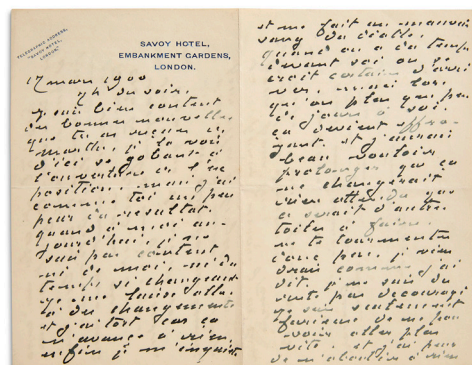 TELEGRAPHIC ADDRESS,
"SAVOY HOTEL,
LONDON."
SAVOY HOTEL,
EMBANKMENT GARDENS,
LONDON.
17 mars 1900
7h du soir.
Je suis bien content
des bonnes nouvelles
que tu as reçues
marche, je la vois
d'ici se gobant à
l'ouverture de l'ex
position, mais j'ai
comme toi un peu
peur du résultat.
quand à moi au-
jourd'hui, je ne
suis pas content
ni de moi, ni du
temps si changeant
je me laisse aller
à des changements
et j'ai tort car ça
n'avance à rien
enfin je m'inquiète
et me fait un mauvais
sang du diable,
quand on a du temps
devant soi on
croit certain d'arri
ver, mais lors
qu'on
de jours à soi
ça devient effra-
yant. et j'aurai
beau vouloir
prolonger que ça
ne changerait
rien attendu que
ce serait d'autres
toiles à faire.
ne te tourmente
donc pas, je vien
drai comme j'ai
dit, je ne suis du
reste pas découragé
je suis seulement
furieux de ne pas
voir aller plus
vite, et j'ai peur
de n'aboutir à rien